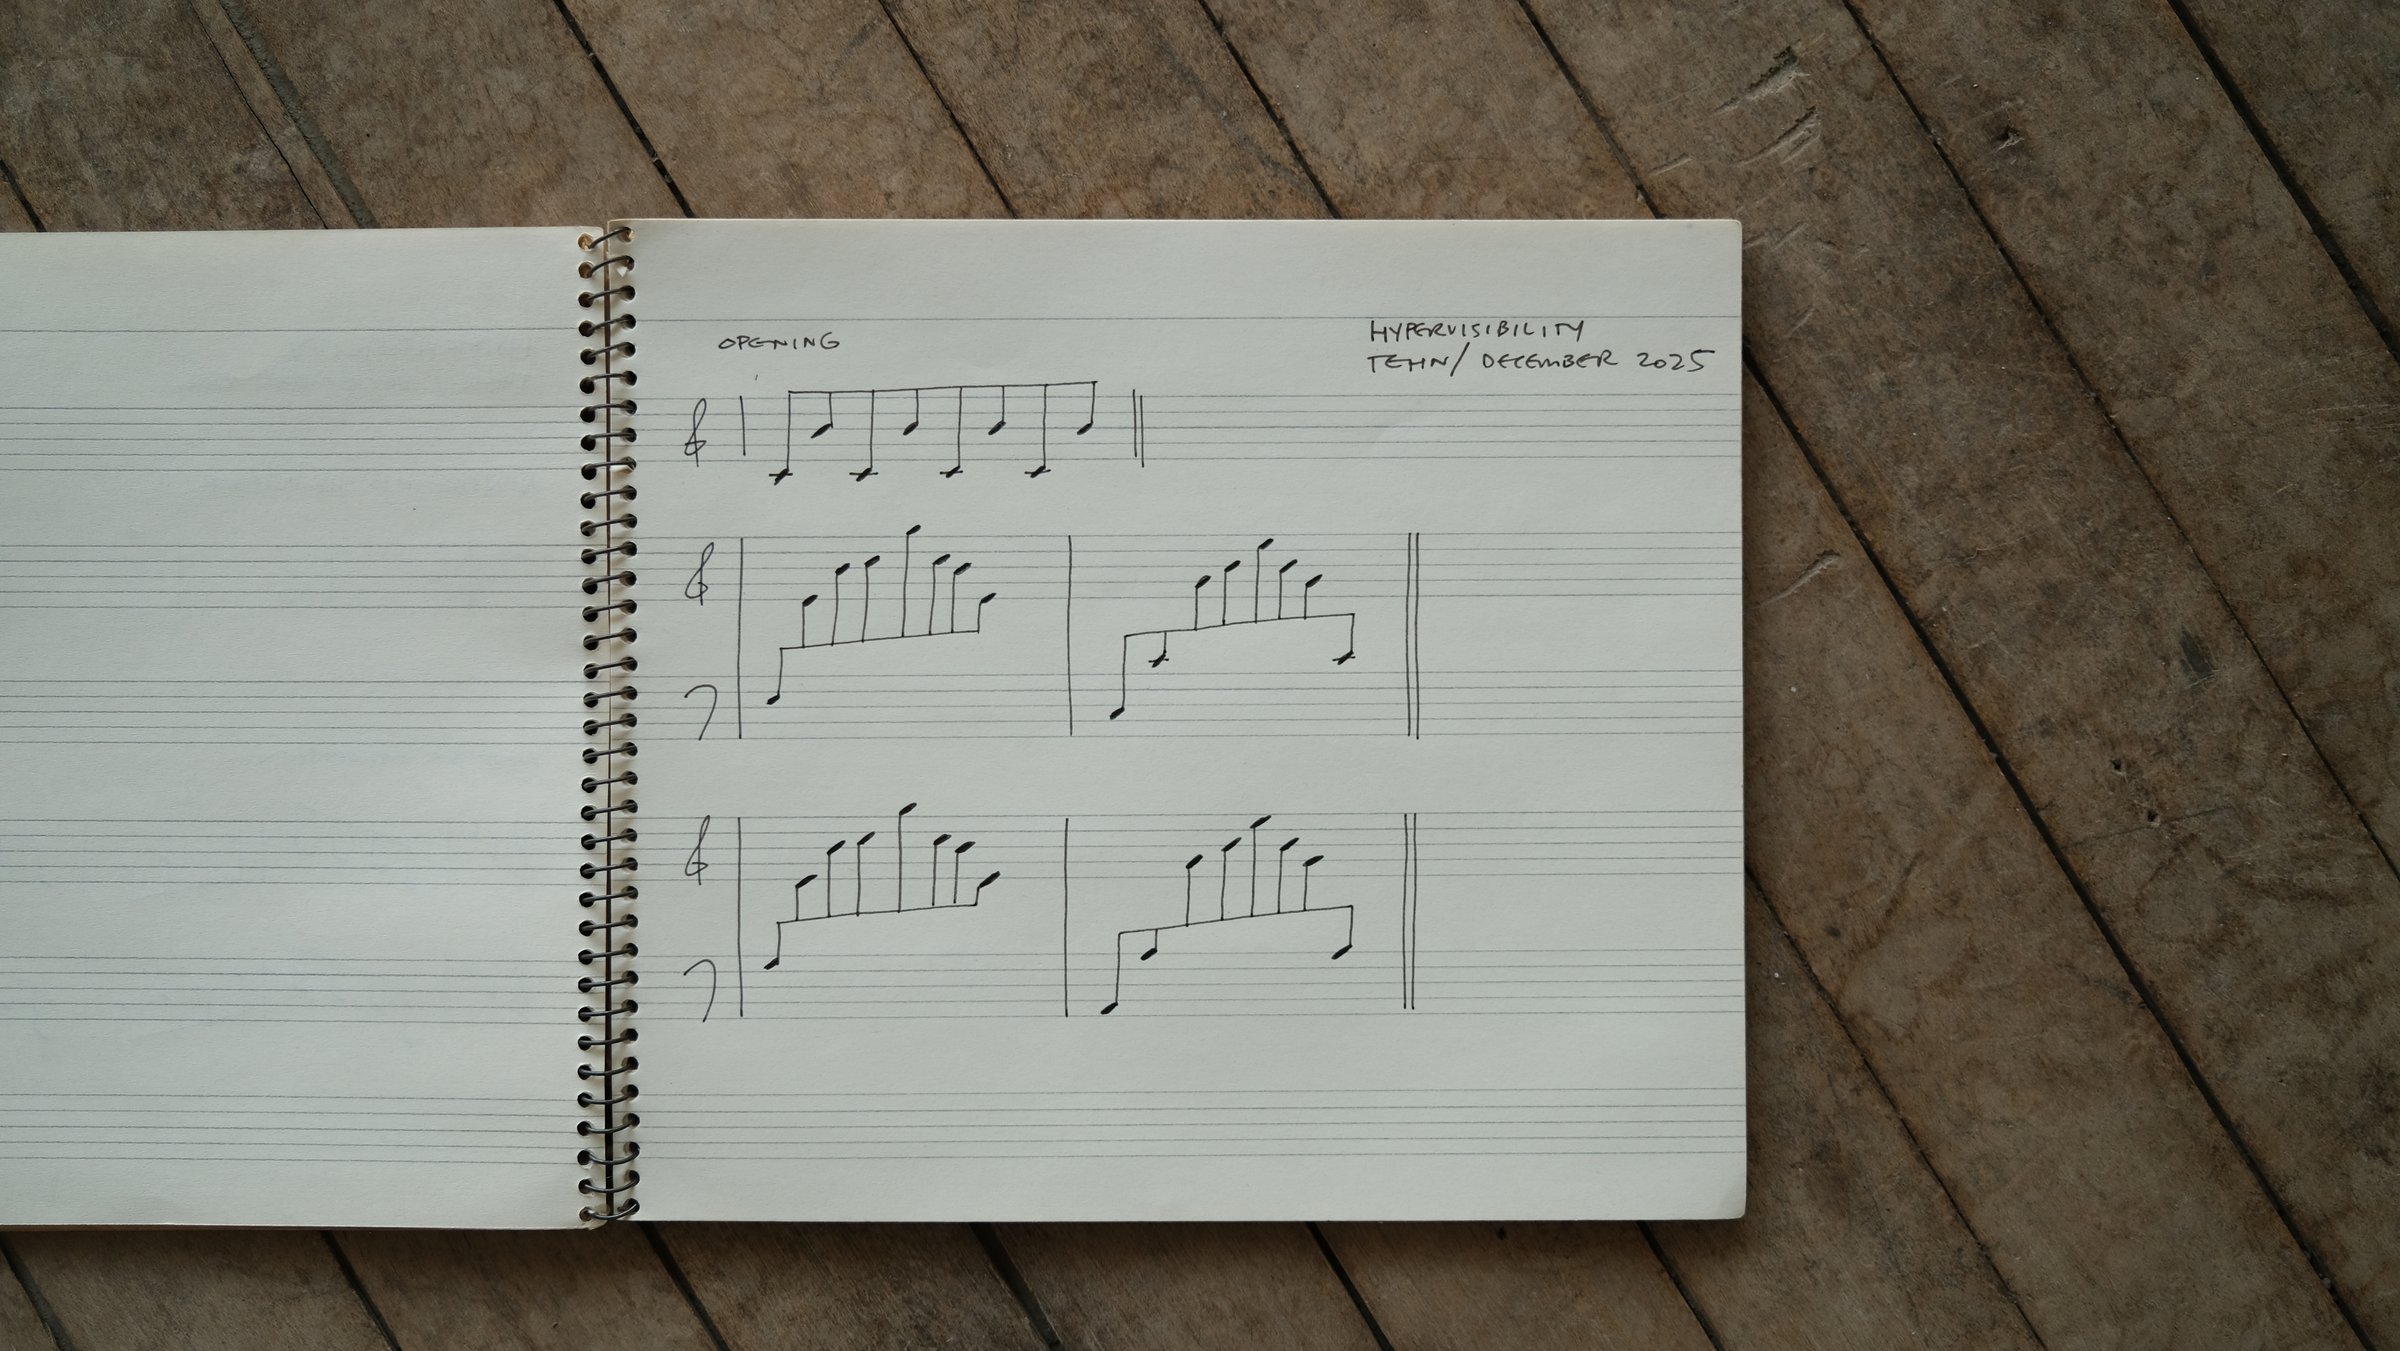 OPENING
HYPERVISIBILITY
TEHN/ DECEMBER 2025